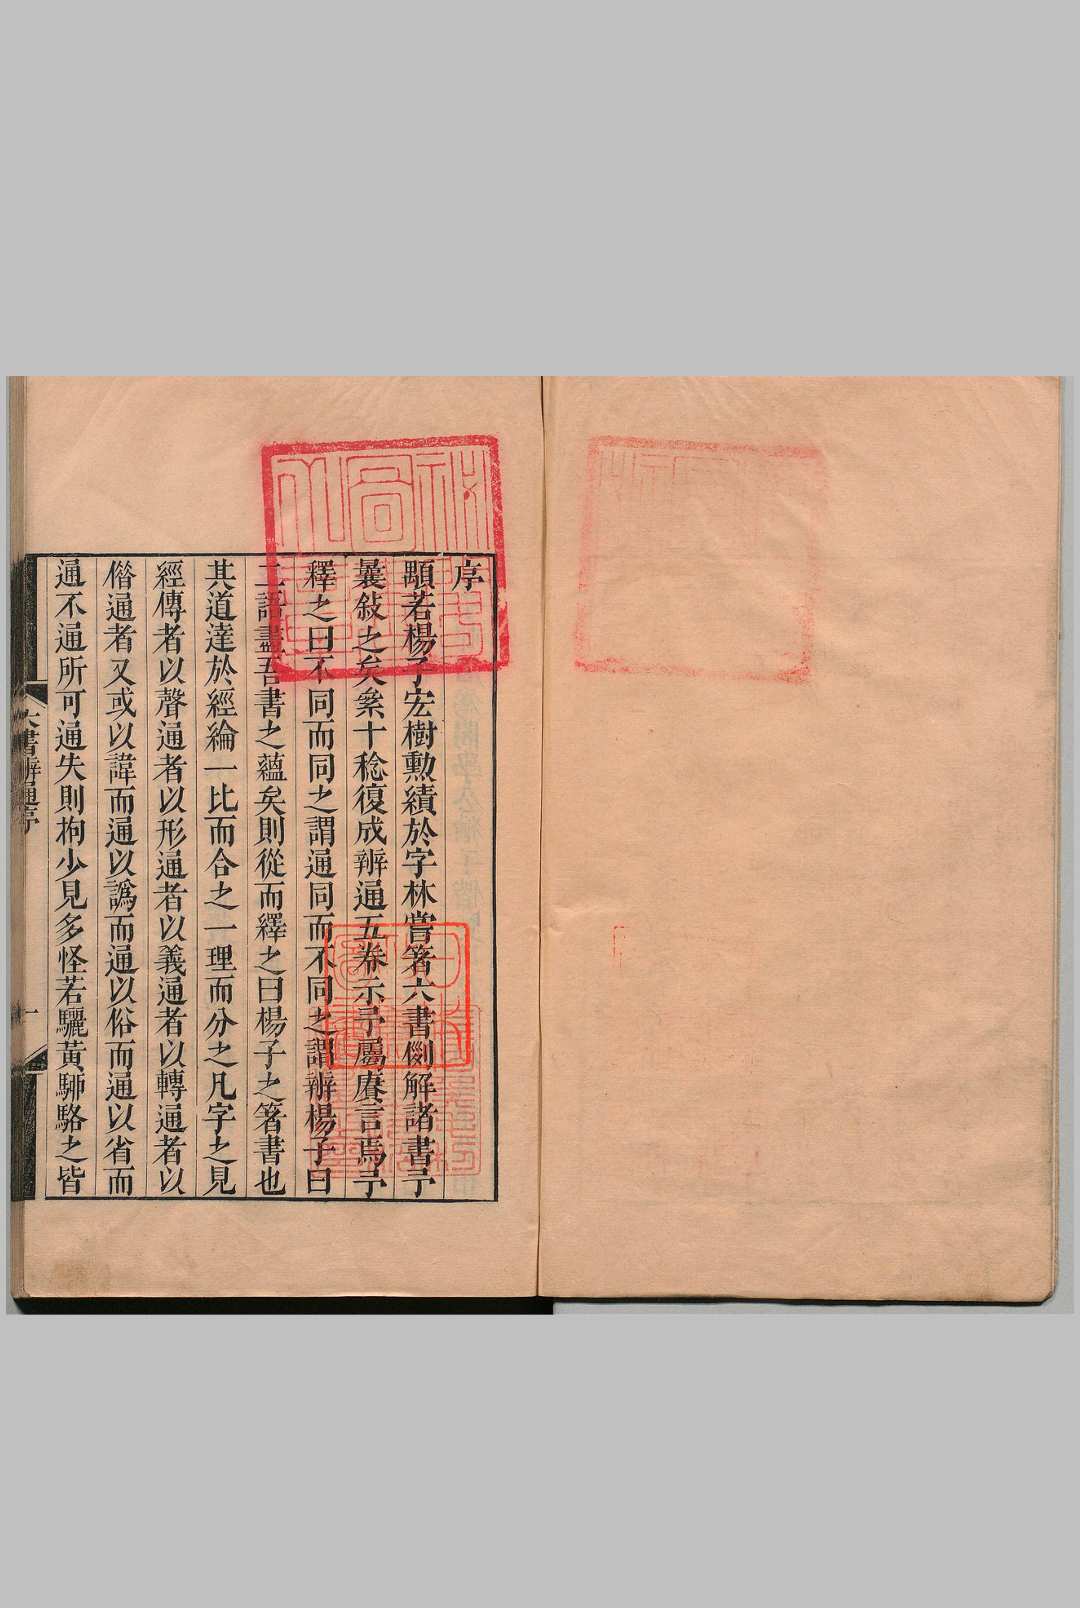 序
顒若楊子宏樹勲績於字林嘗箸六書例解諸書予
曩敍之矣絫十稔復成辨通五卷示予屬賡言焉予
釋之曰不同而同之謂通同而不同之謂辨楊子曰
二語盡吾書之蘊矣則從而繹之曰楊子之箸書也
其道達於經綸一比而合之一理而分之凡字之見
經傳者以聲通者以形通者以義通者以轉通者以
偝通者又或以諱而通以譌而通以俗而通以省而
通不通所可通失則拘少見多怪若驪黃駵駱之皆
六書辨通序
一